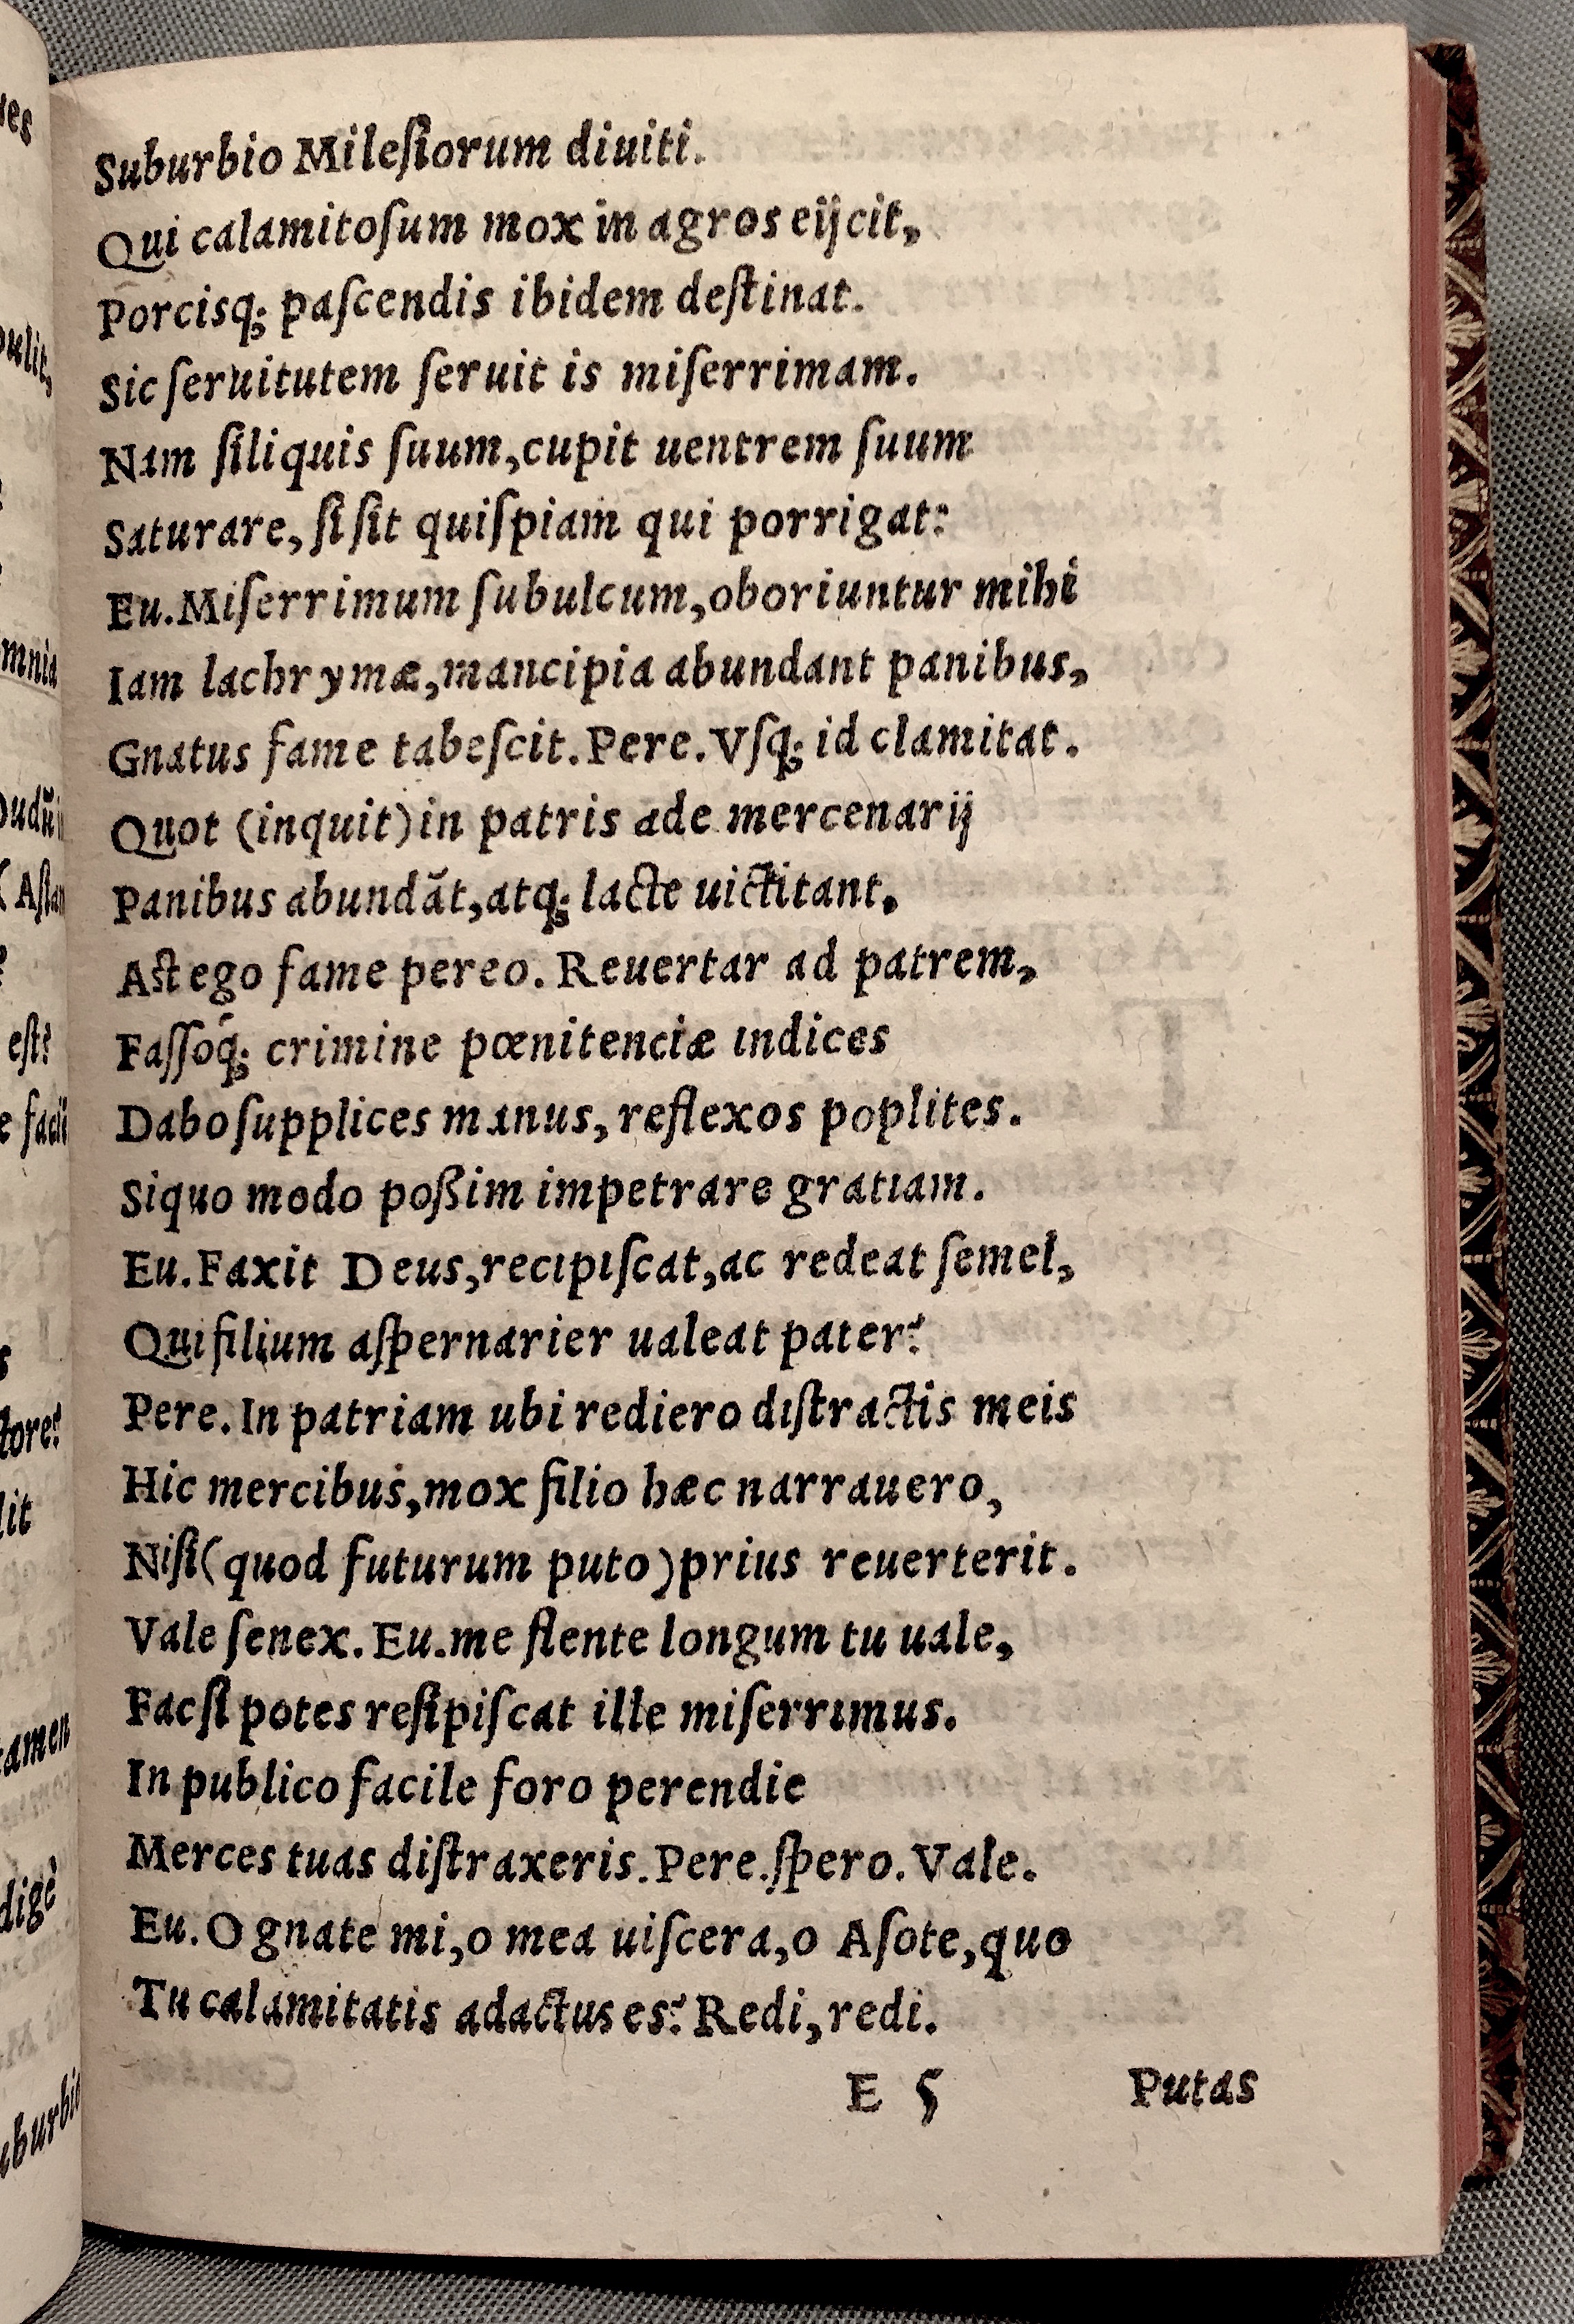 Suburbio Mileſiorum diuiti.
Qui calamitoſum mox in agros eijcit,
Porcisq; paſcendis ibidem deſtinat.
Sic ſeruitutem ſeruit is miſerrimam.
Nam ſiliquis ſuum,cupit uentrem ſuum
Saturare, ſi ſit quiſpiam qui porrigat:
Eu.Miſerrimum ſubulcum,oboriuntur mihi
Iam lachrymæ,mancipia abundant panibus,
Gnatus fame tabeſcit.Pere.Vſq; id clamitat.
Quot (inquit)in patris æde mercenarij
Panibus abundāt,atq; lacte uictitant,
Aſt ego fame pereo. Reuertar ad patrem,
Faſſoq́; crimine pœnitenciæ indices
Dabo ſupplices manus, reflexos poplites.
Siquo modo poßim impetrare gratiam.
Eu.Faxit Deus,recipiſcat,ac redeat ſemel,
Qui filium aſpernarier ualeat pater?
Pere.In patriam ubi rediero diſtractis meis
Hic mercibus,mox filio hæc narrauero,
Niſi(quod futurum puto)prius reuerterit.
Vale ſenex. Eu.me flente longum tu uale,
Fac ſi potes reſipiſcat ille miſerrimus.
In publico facile foro perendie
Merces tuas diſtraxeris.Pere.ſpero.Vale.
Eu.O gnate mi,o mea uiſcera,o Aſote,quo
Tu calamitatis adactus es? Redi,redi.
E 5 Putas